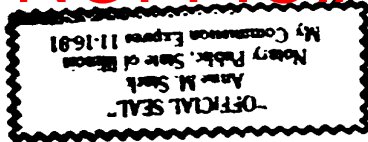 "OFFICIAL SEAL"
Anne M. Stark
Notary Public, State of Illinois
My Commission Expires 11-16-91